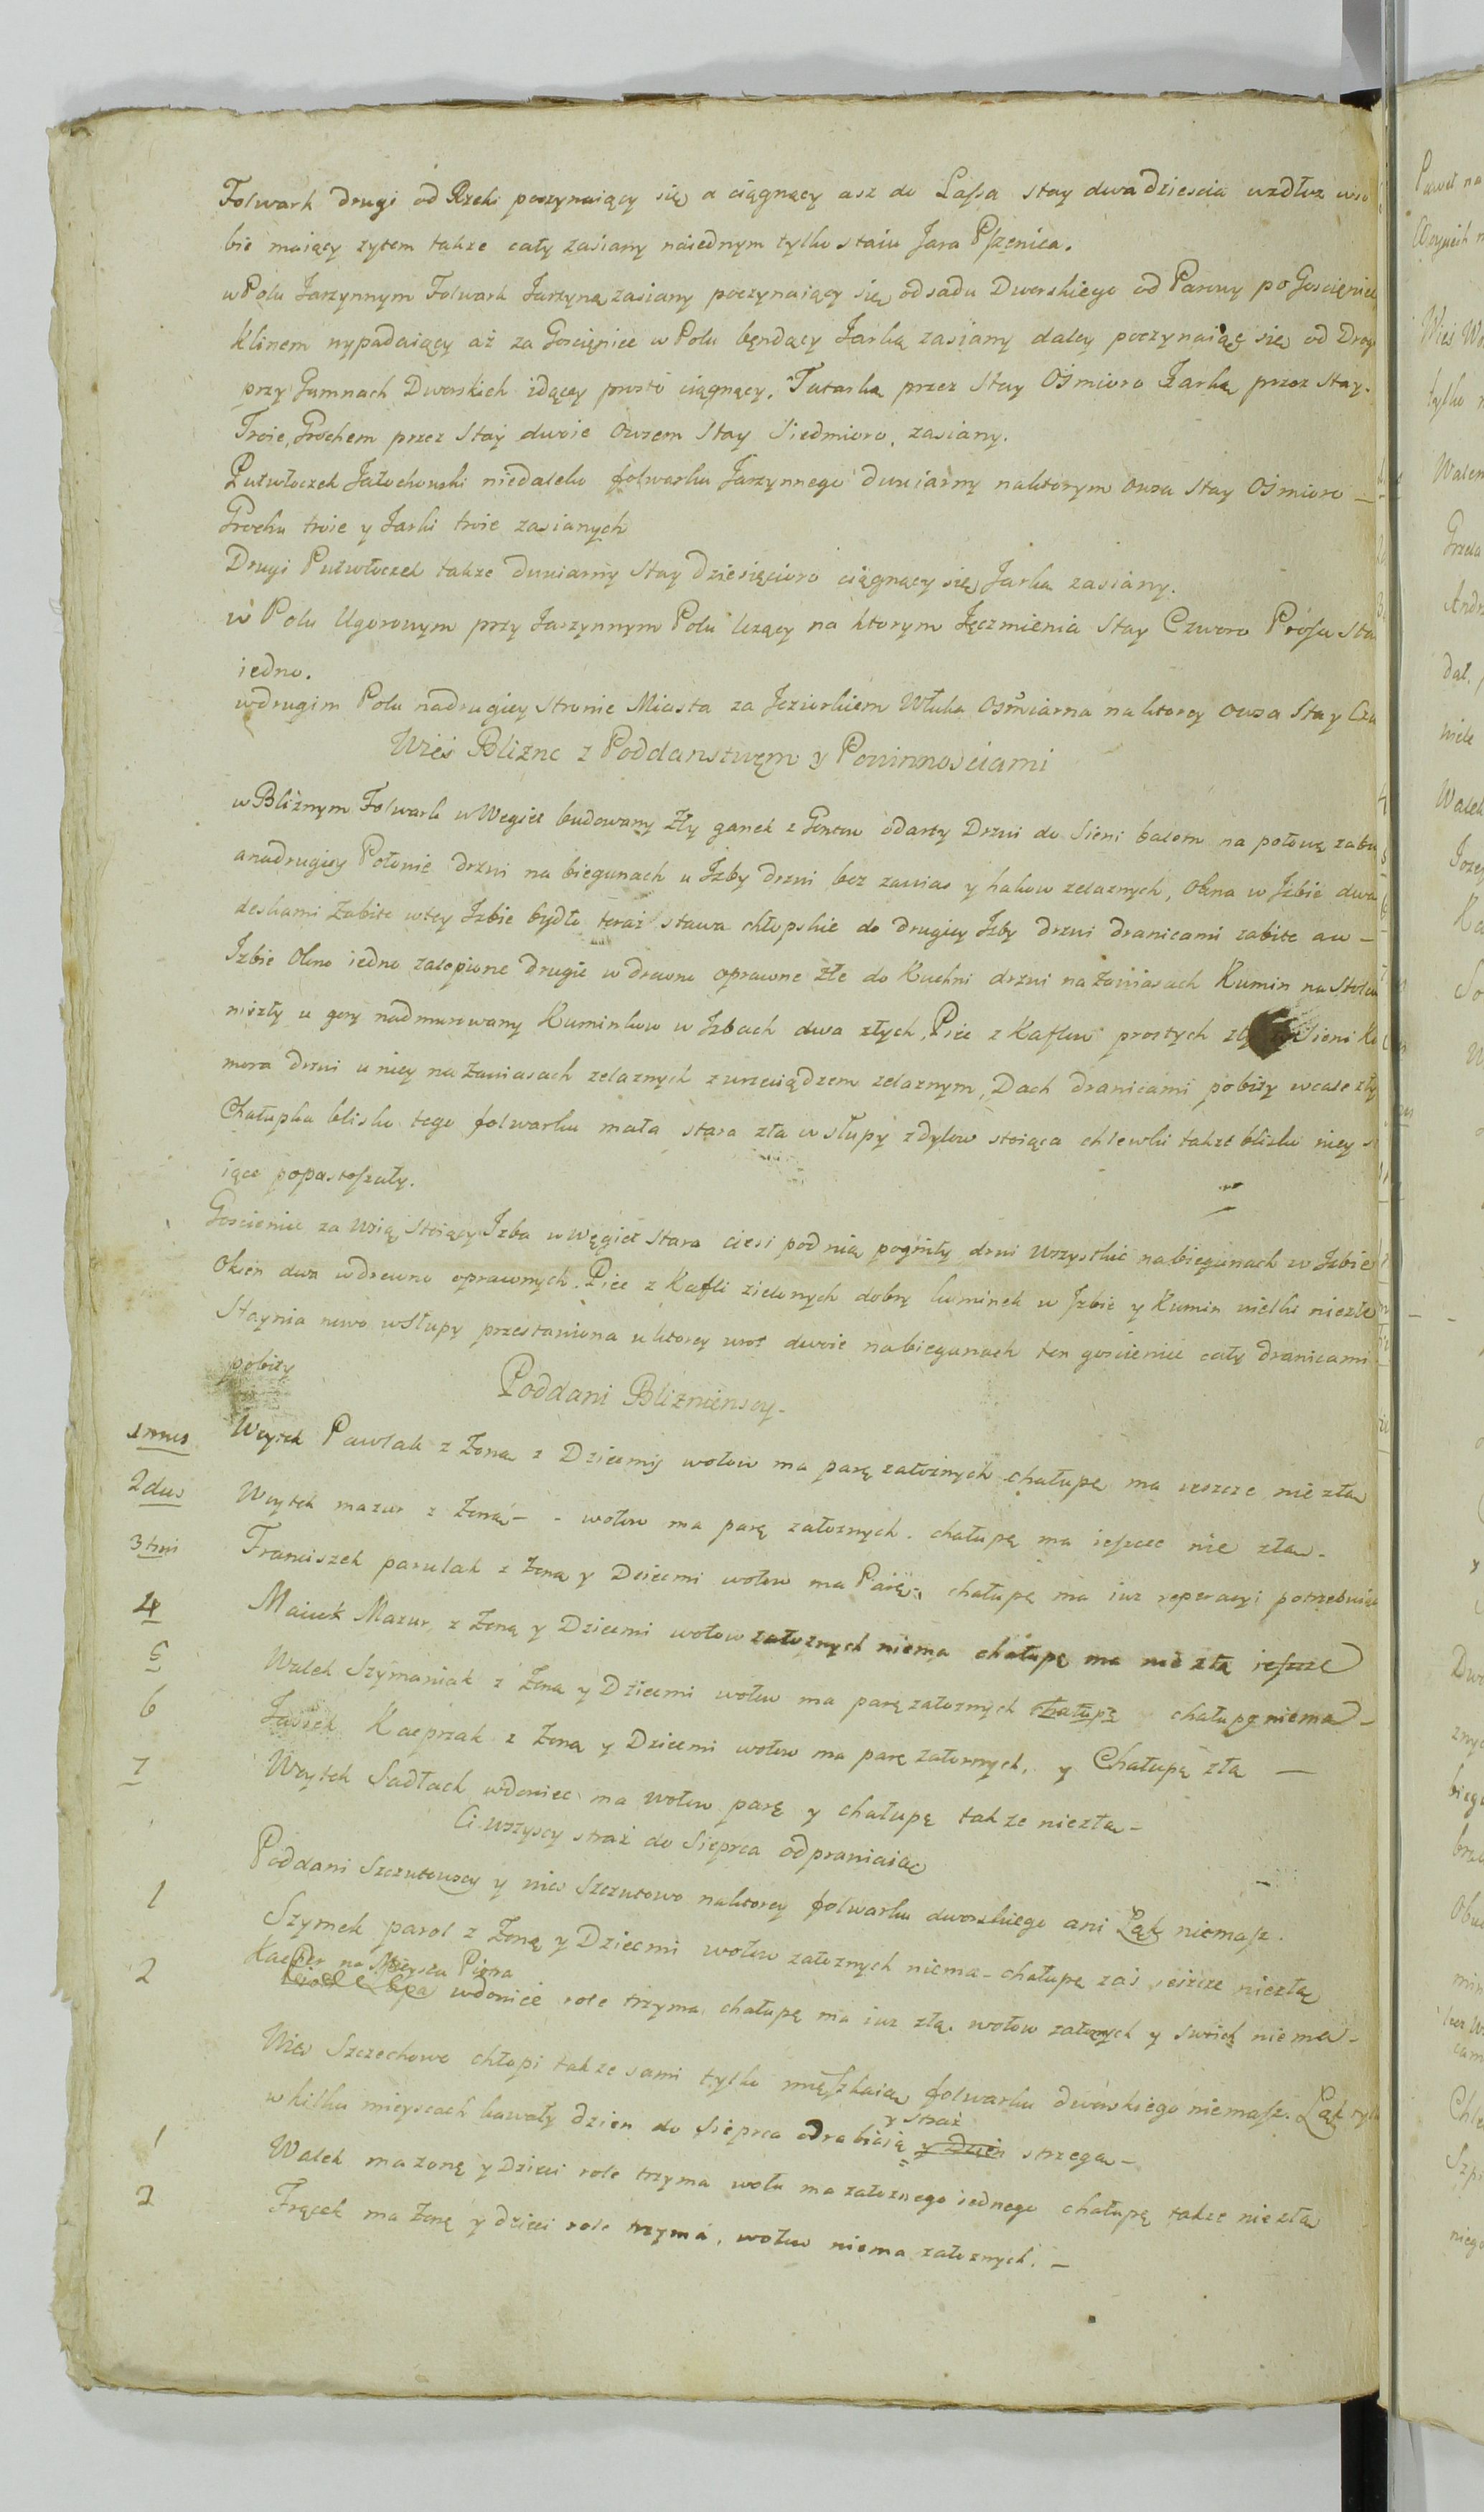 Folwark drugi od Rzeki poczynaiący się a ciągnący asz do Lassa Stay dwadziescia wzdłuz wso
bie maiący zytem takze cały zasiany naiednym tylko staiu Jara Pszenica.
w Polu Jarzynnym Folwark Jarzyną zasiany poczynaiący się od sadu Dworskiego od Parowy po Goscięniec
Klinem wypadaiący aż za Gościęniec w Polu będący Jarką zasiany daley poczynaiąc się od Drog
przy Gumnach Dworskich idącey prosto ciągnący, Tatarką przez Stay Ośmioro Jarką przez Stay.
Troie, Grochem przez Stay dwoie Owsem Stay Siedmioro, zasiany.
Pułwłoczek Jałochowski niedaleko folwarku Jarzynnego dwuiarny naktorym Owsa Stay Ośmioro —
Grochu troie y Jarki troie zasianych
Drugi Pułwłoczek takze dwuiarny Stay dziesięcioro ciągnący się Jarką zasiany.
w Polu Ugorowym przy Jarzynnym Polu lezący na ktorym Jęczmienia Stay Czworo Prosa Sta
iedno.
wdrugim Polu nadrugiey Stronie Miasta za Jeziorkiem Włuka Ośmiarna na ktorey Owsa Stay Czw
Wieś Blizne z Poddanstwem y Powinnościami
w Bliznym Folwark w Węgieł budowany Zły ganek z Gontow odarty Drzwi do Sieni balem na połowę zabi
anadrugiey Połowie drzwi na biegunach u Izby drzwi bez zawias y hakow zelaznych, Okna w Izbie dwa
deskami Zabite wtey Izbie bydło teraz stawa chłopskie do drugiey Izby drzwi dranicami zabite aw —
Izbie Okno iedno zalepione drugie w drewno oprawne złe do Kuchni drzwi na Zawiasach Kumin na Stolcu
niezły u gory nadmurowany Kuminkow w Izbach dwa złych, Piec z Kaflow prostych Sieni Ko
mora drzwi u niey na Zawiasach zelaznych z wrzeciądzem zelaznym, Dach dranicami pobity wcale zły
Chałupka blisko tego folwarku mała stara zła w słupy zdylow stoiąca chlewki takze blisko niey s
iące popustoszały.
Goscieniec za wsią Stoiący Izba w węgieł Stara ciesi pod nią pogniły drzwi wszystkie nabiegunach w Izbie
Okien dwa wdrewno oprawnych. Piec z Kafli zielonych dobry kuminek w Izbie y Kumin wielki niezłe
Staynia nowo wSłupy przestawiona u ktorey wrot dwoie nabiegunach ten goscieniec cały dranicami
pobity
Poddani Bliznienscy.
1mus Woytek Pawlak z Zoną z Dziecmi wołow ma parę załoznych chałupę ma ieszcze nie złą
2dus Woytek mazur z Zoną - - wołow ma parę załoznych. chałupę ma ieszcze nie złą.
3tius Franciszek parulak z Zoną y Dziecmi wołow ma Parę, chałupę ma iuz reperacyi potrzebuie
4 Maciek Mazur, z Zoną y Dziecmi wołow załoznych niema chałupę ma nie złą ieszcze
5 Walek Szymaniak z Zoną y Dziecmi wołow ma parę załoznych chałupę chałupę niema —
6 Jasiek Kacprzak z Zoną y Dziecmi wołow ma parę załoznych, y Chałupę złą —
7 Woytek Sadłach wdowiec ma wołow parę y chałupę takze niezła —
Ci wszyscy straż do Sieprca odprawiaią
Poddani Szczutowscy y wies Szczutowo naktorey folwarku dworskiego ani Łąk niemasz.
1 Szymek parol z Zoną y Dziecmi wołow załoznych niema — chałupę zaś ieszcze niezłą
Kacper na Mieyscu Piotra
2 wdowiec role trzyma, chałupę ma iuz złą. wołow załoznych y swoich niema —
Wies Szczechowo chłopi takze sami tylko mięszkaią folwarku dworskiego niemasz. Łąk tyl
w kilku mieyscach kawały dzien do Sieprca odrabiaią y straż y dzien strzegą —
1 Walek ma zonę y Dzieci role trzyma wołu ma załoznego iednego chałupę takze niezłą
2 Frącek ma Zonę y dzieci role trzyma, wołow niema załoznych. —